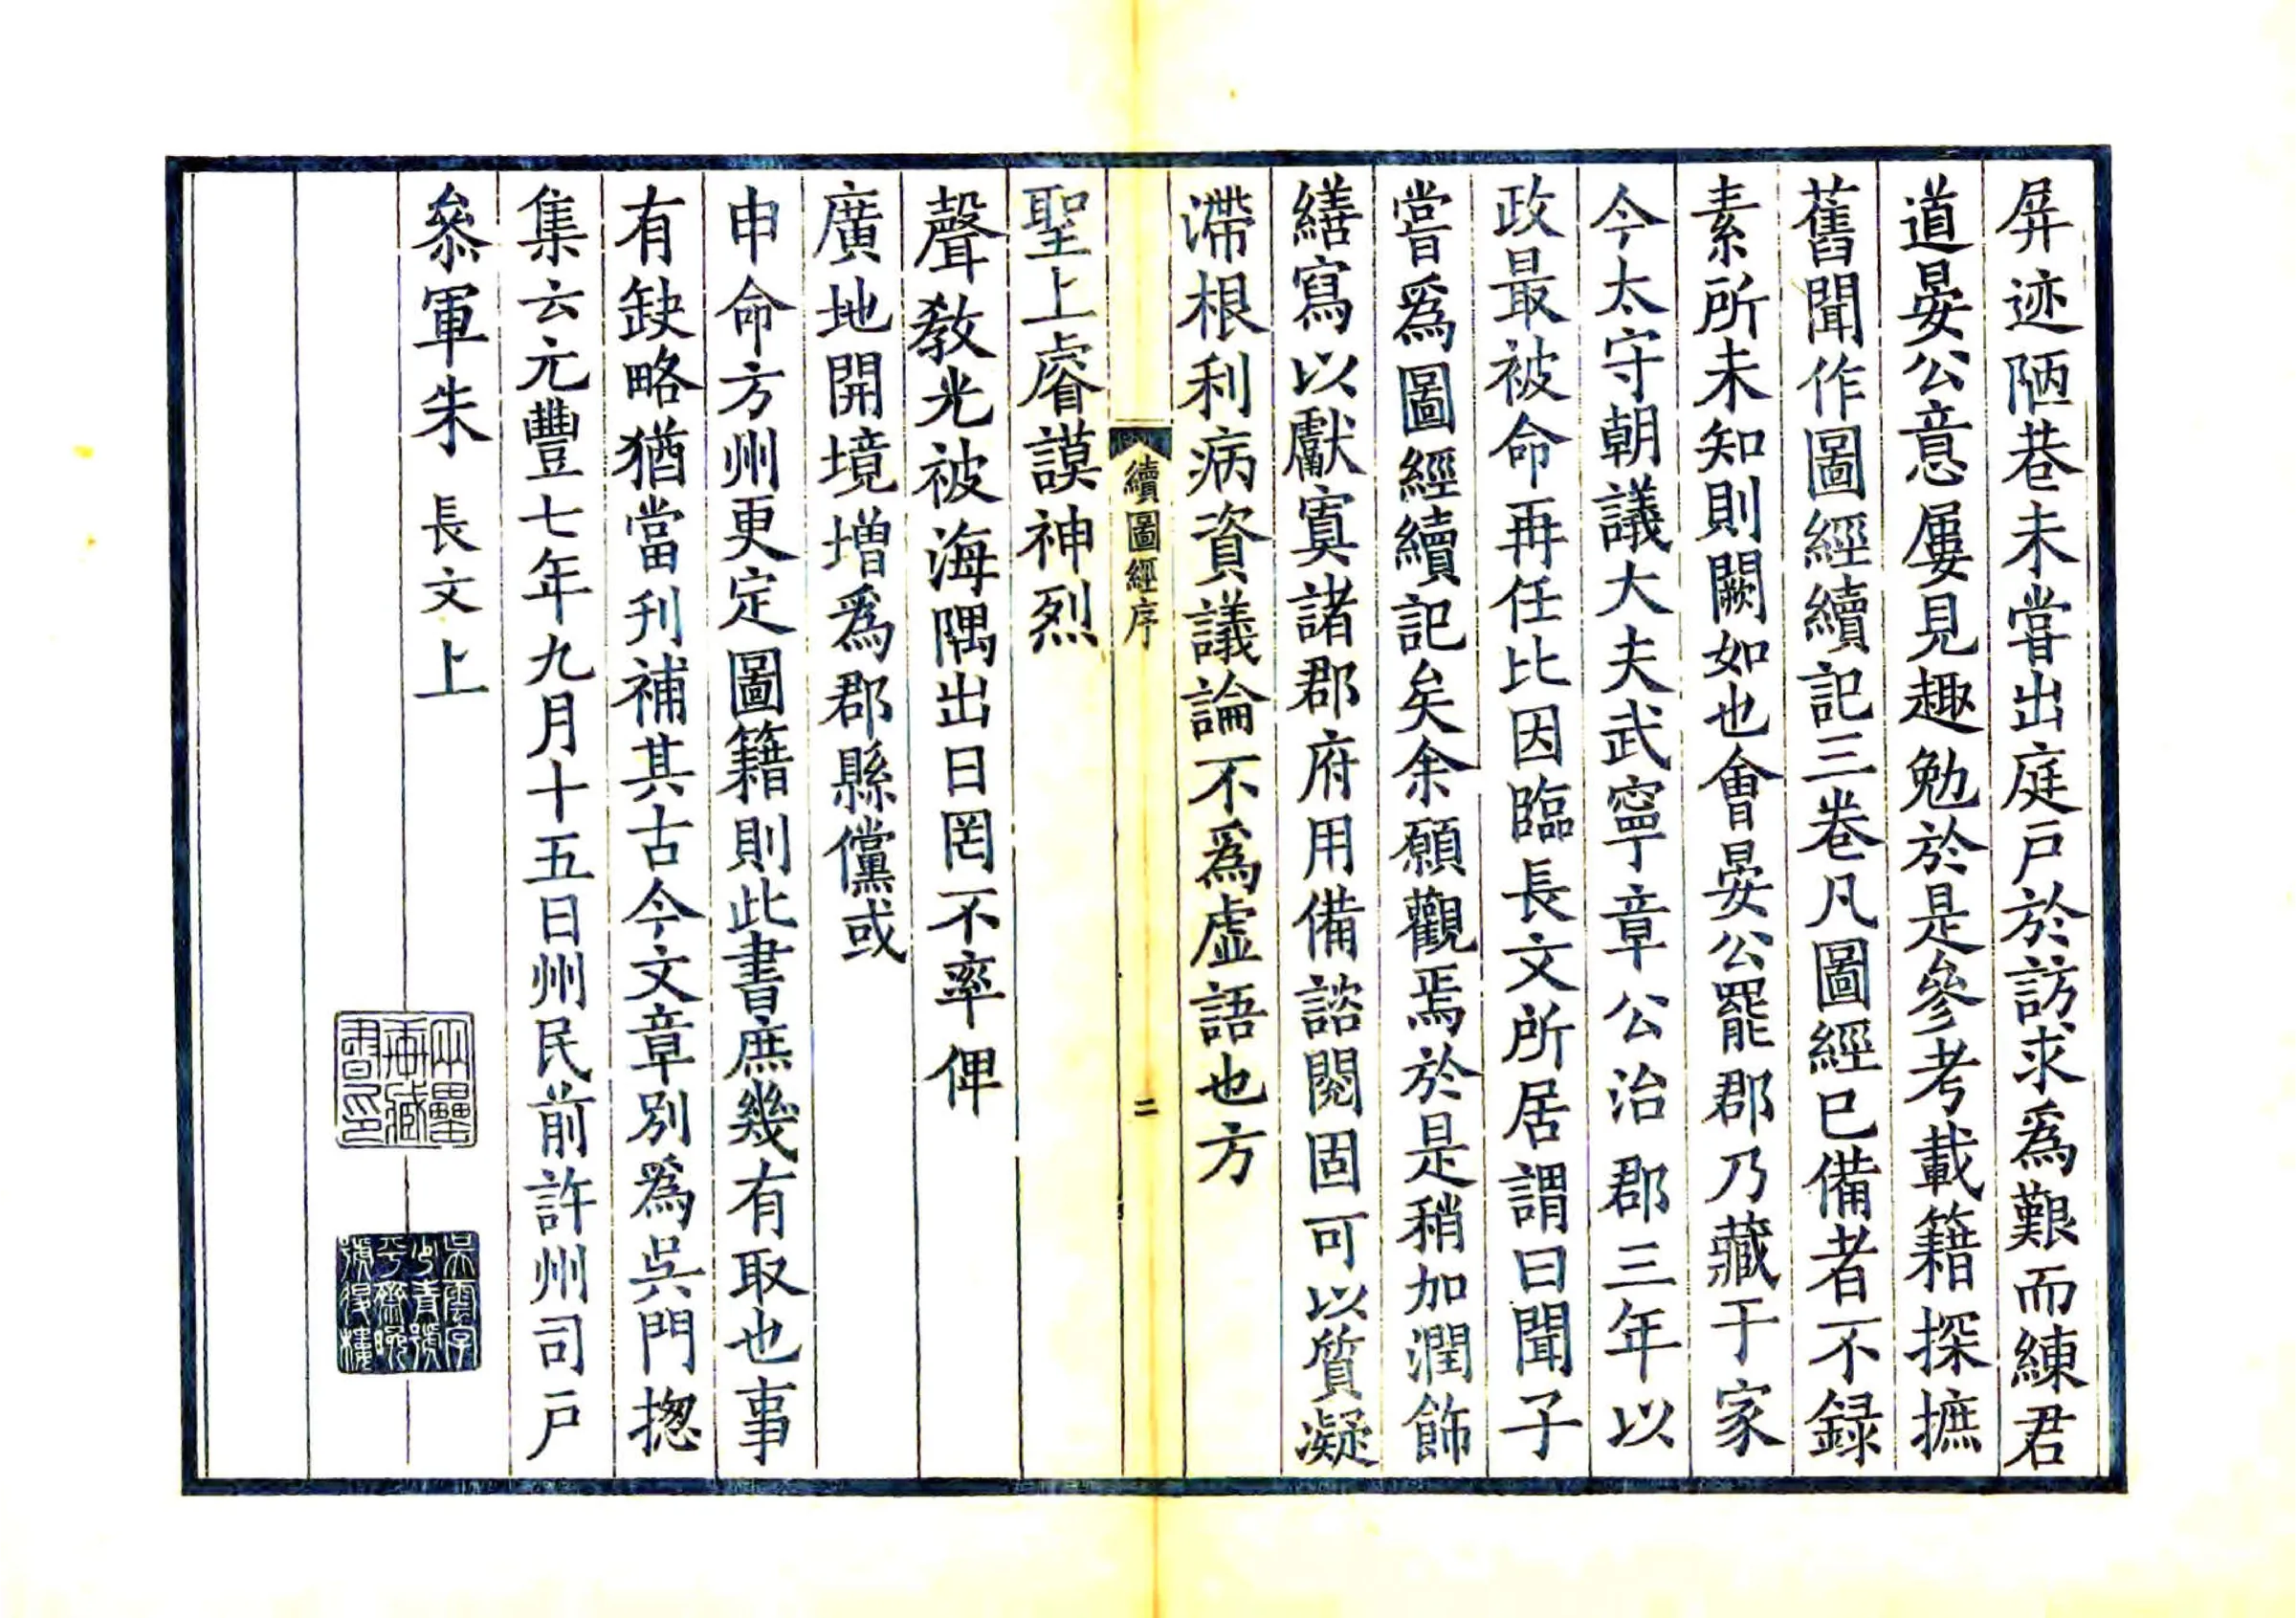 屏迹陋巷未嘗出庭戸於訪求爲艱而練君
道晏公意屢見趣勉於是參考載籍探摭
舊聞作圖經續記三卷凡圖經已備者不録
素所未知則闕如也會晏公罷郡乃藏于家
今太守朝議大夫武寧章公治郡三年以
政最被命再任比因臨長文所居謂曰聞子
嘗爲圖經續記矣余願觀焉於是稍加潤飾
繕寫以獻寘諸郡府用備諮閲固可以質凝
滯根利病資議論不爲虚語也方
續圖經序
二
聖上睿謨神烈
聲教光被海隅出日罔不率俾
廣地開境增爲郡縣儻或
申命方州更定圖籍則此書庶幾有取也事
有缺略猶當刋補其古今文章別爲吳門揔
集云元豐七年九月十五日州民前許州司戸
叅軍朱長文上